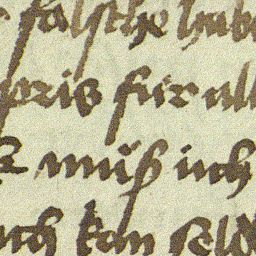 falsche hab
preis für all
muß ich
ich kan seld